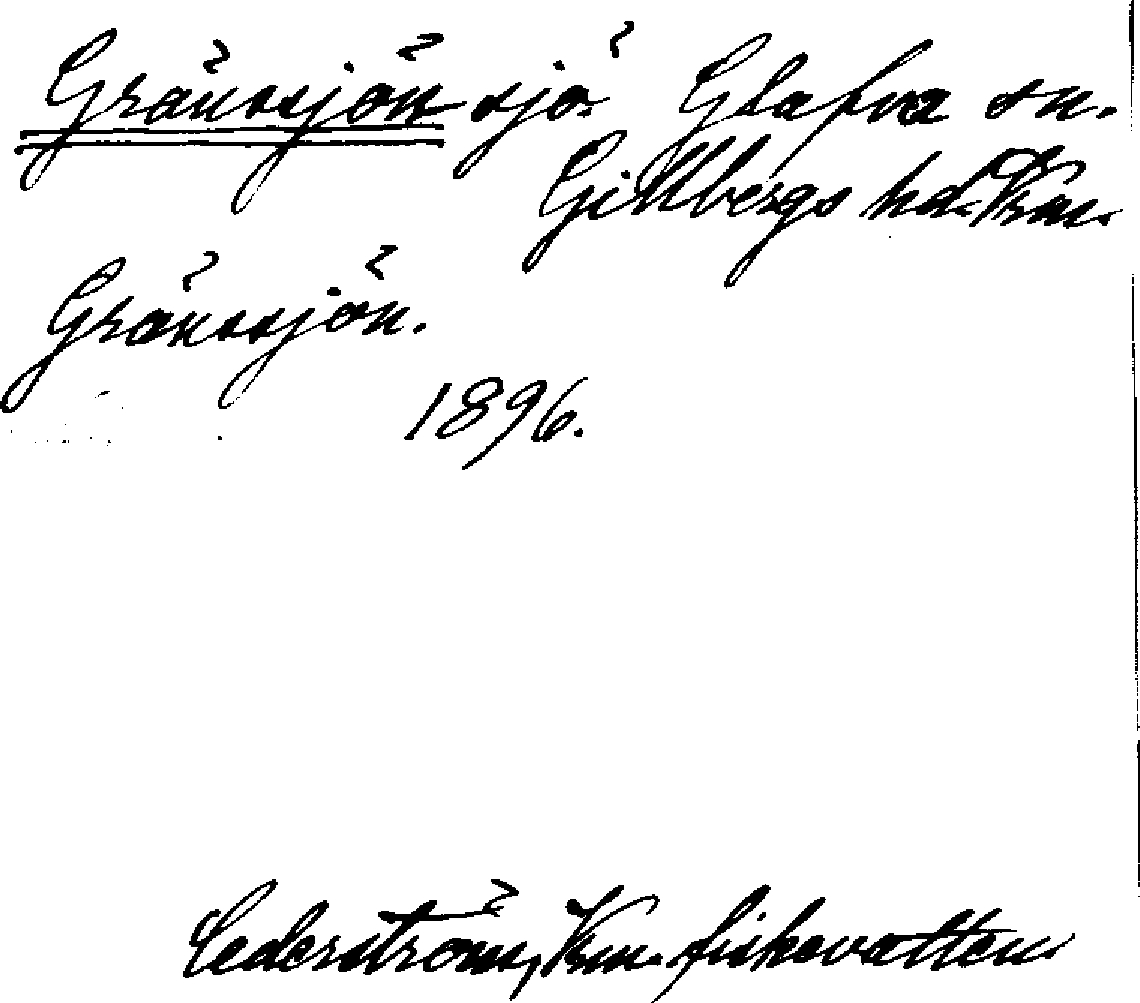 Gränssjön sjö. Glafva sn.
Gillbergs hd. Vrm.
Gränssjön.
1896.
Cederström, Vrm. fiskevatten.